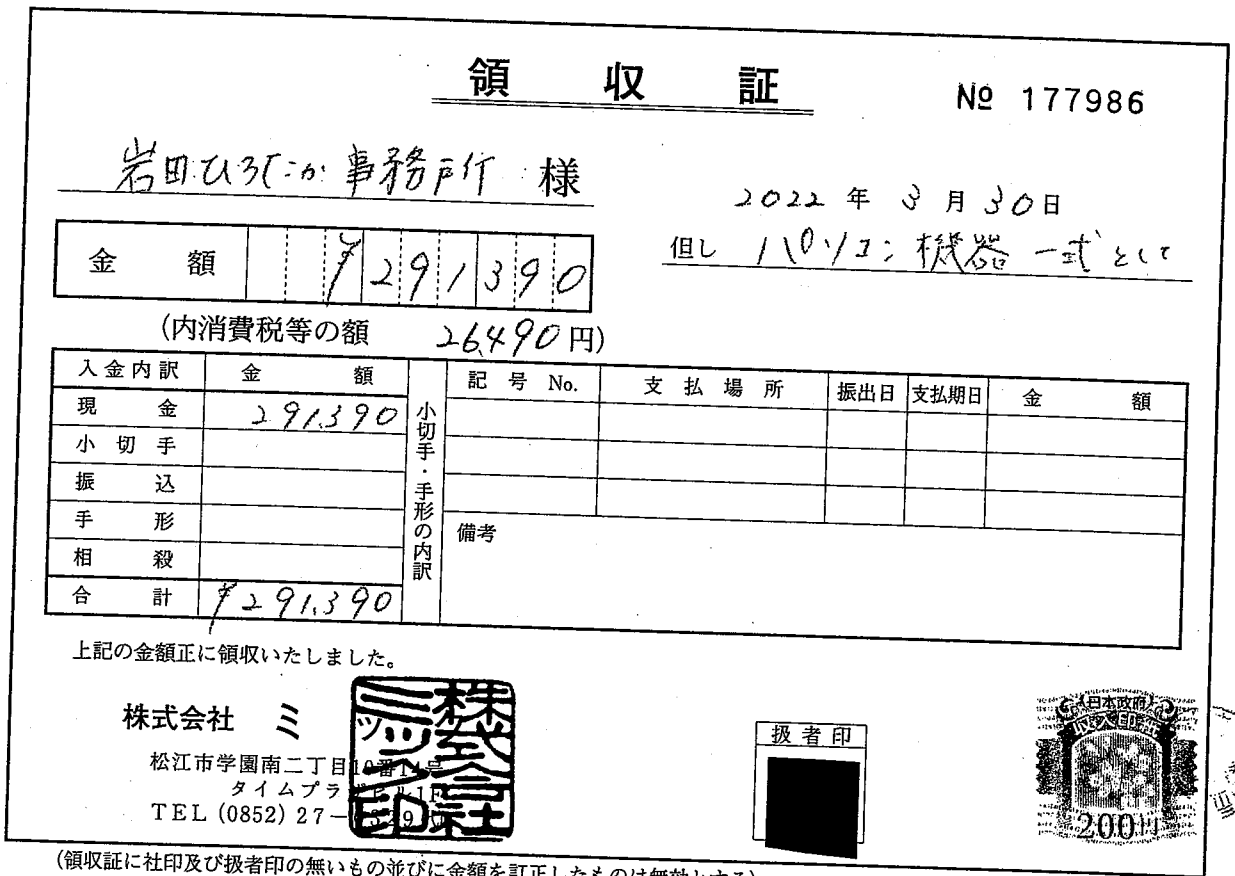 領収証
№ 177986
岩田ひろたか事務所 様
2022年3月30日
金額 ¥291390
但し パソコン機器一式として
(内消費税等の額 26,490円)
入金内訳 金額
現金 291,390
小切手
振込
手形
相殺
合計 ¥291,390
小切手・手形の内訳
記号No. 支払場所 振出日 支払期日 金額
備考
上記の金額正に領収いたしました。
株式会社 ミ
株式会社ミック印
松江市学園南二丁目10番14号
タイムプラザビル1F
TEL (0852) 27-
扱者印
日本政府
収入印紙
200円
(領収証に社印及び扱者印の無いもの並びに金額を訂正したものは無効とする)